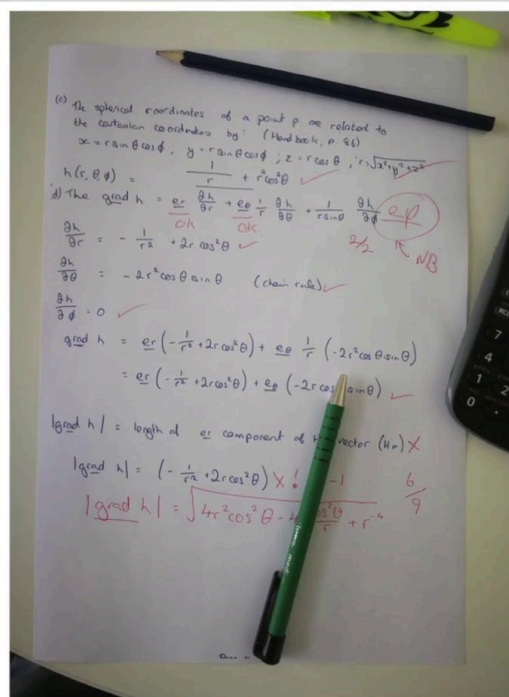 (c) The spherical coordinates of a point p are related to
the cartesian coordinates by: (Handbook, p. 86)
x = r sin θ cos ϕ, y = r sin θ cos ϕ ; z = r cos θ, r = √x²+y²+z²
h(r, θ, ϕ) = 1/r + r²cos²θ ✓
d) The grad h = er ∂h/∂r + eθ 1/r ∂h/∂θ + 1/r sin θ ∂h/∂ϕ eϕ
ok ok
2/2 NB
∂h/∂r = - 1/r² + 2r cos²θ ✓
∂h/∂θ = - 2r² cos θ sin θ (chain rule) ✓
∂h/∂ϕ = 0 ✓
grad h = er (- 1/r² + 2r cos²θ) + eθ 1/r (-2r² cos θ sin θ)
= er (- 1/r² + 2r cos²θ) + eθ (-2r cos sin θ) ✓
|grad h| = length of er component of vector (Hr) X
|grad h| = (- 1/r² + 2r cos²θ) X ! -1
6/9
|grad h| = √4r²cos²θ - 4 cos²θ/r + r⁻⁴